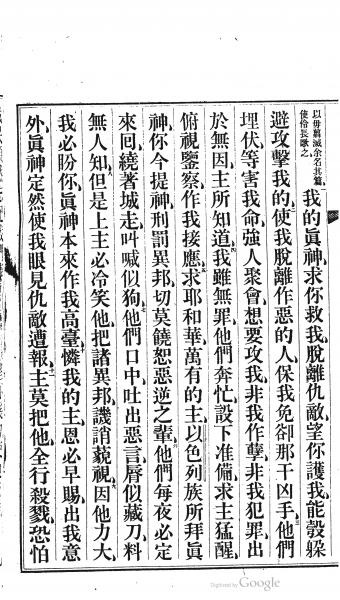 以毋翦滅余名其篇
使伶長歌之
我的眞神、求你救我、脫離仇敵、望你護我、能彀躱
避攻擊我的、使我脫離作惡的人、保我免卻那干凶手、他們
埋伏等害我命、強人聚會、想要攻我、非我作孽、非我犯罪、出
於無因、主所知道、我雖無罪、他們奔忙、設下准備、求主猛醒、
俯視鑒察、作我接應、求耶和華、萬有的主、以色列族所拜眞
神、你今提神、刑罰異邦、切莫饒恕惡逆之輩、他們每夜必定
來回、繞著城走、叫喊似狗、他們口中、吐出惡言、脣似藏刀、料
無人知、但是上主、必冷笑他、把諸異邦、譏誚藐視、因他力大、
我必盼你、眞神本來作我高臺、憐我的主、恩必早賜、出我意
外、眞神定然使我眼見仇敵遭報、主莫把他、全行殺戮、恐怕
Digitized by Google